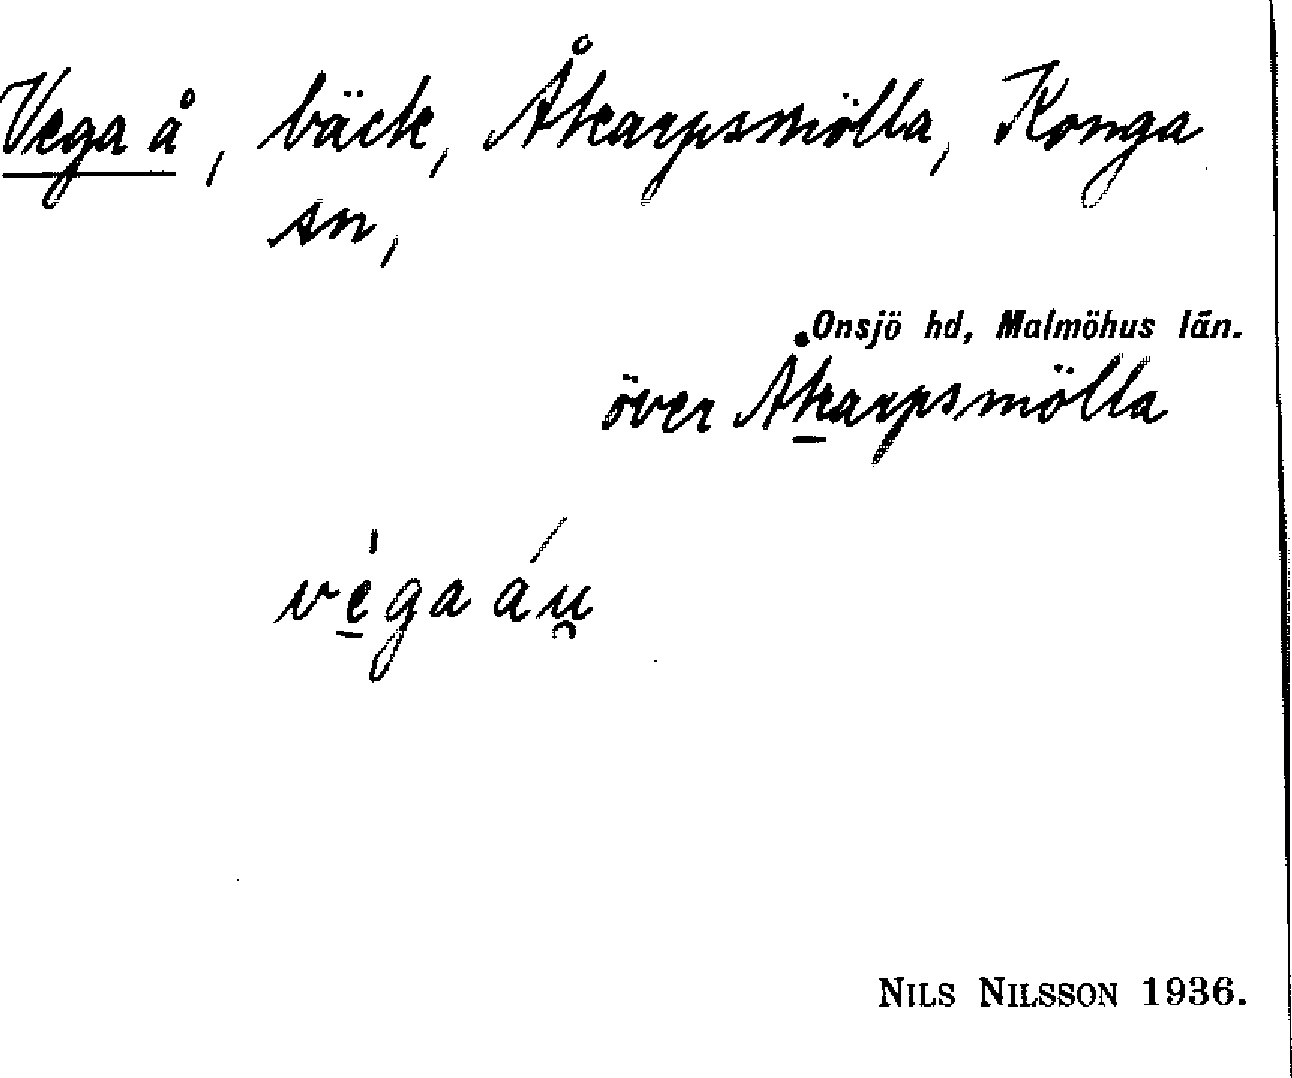 Vega å, bäck, Åkarpsmölla, Konga
sn,
Onsjö hd, Malmöhus län.
över Åkarpsmölla
vega au
NILS NILSSON 1936.